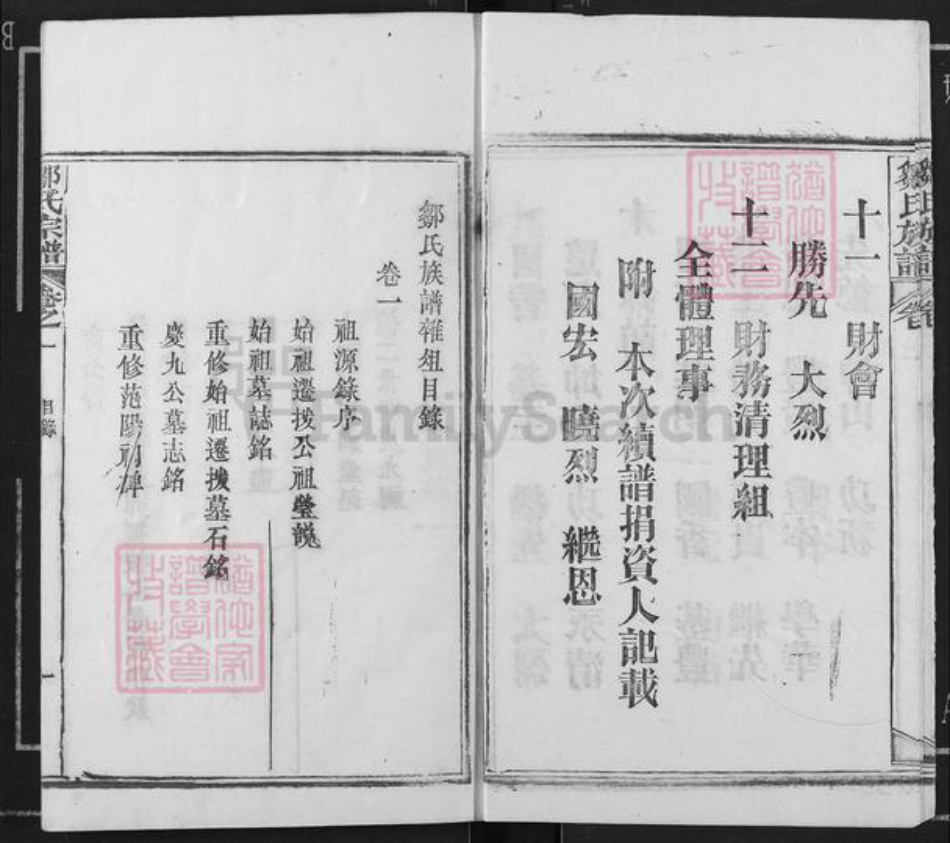 鄒氏族譜
十一 財會
勝先 大烈
十二 財務清理組
全體理事
附 本次續譜捐資人記載
國宏 曉烈 繼恩
鄒氏族譜雜俎目錄
卷一
祖源錄序
始祖遷拨公祖塋說
始祖墓誌銘
重修始祖遷拨墓石銘
慶九公墓志銘
重修范陽祠碑
鄒氏宗譜
卷之一
目錄
一
FamilySearch